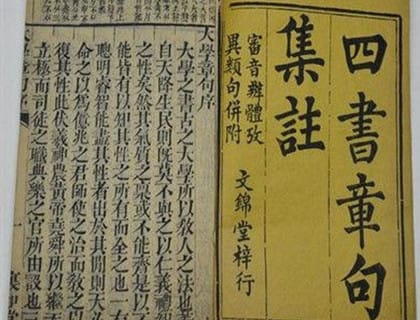 四書章句
集註
審音辨體攷
異類句併附
文錦堂梓行
大學章句序
大學之書古之大學所以敎人之法也蓋
自天降生民則既莫不與之以仁義禮智
之性矣然其氣質之稟或不能齊是以不
能皆有以知其性之所有而全之也一有
聰明睿智能盡其性者出於其間則天必
命之以爲億兆之君師使之治而敎之以
復其性此伏羲神農黃帝堯舜所以繼天
立極而司徒之職典樂之官所由設也三